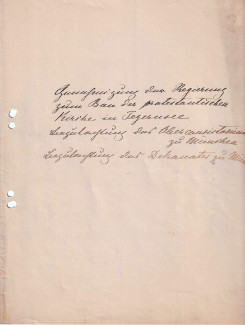 Genehmigung der Regierung
zum Bau der protestantischen
Kirche in Tegernsee
des Oberconsistoriums
zu München
des Dekanates zu